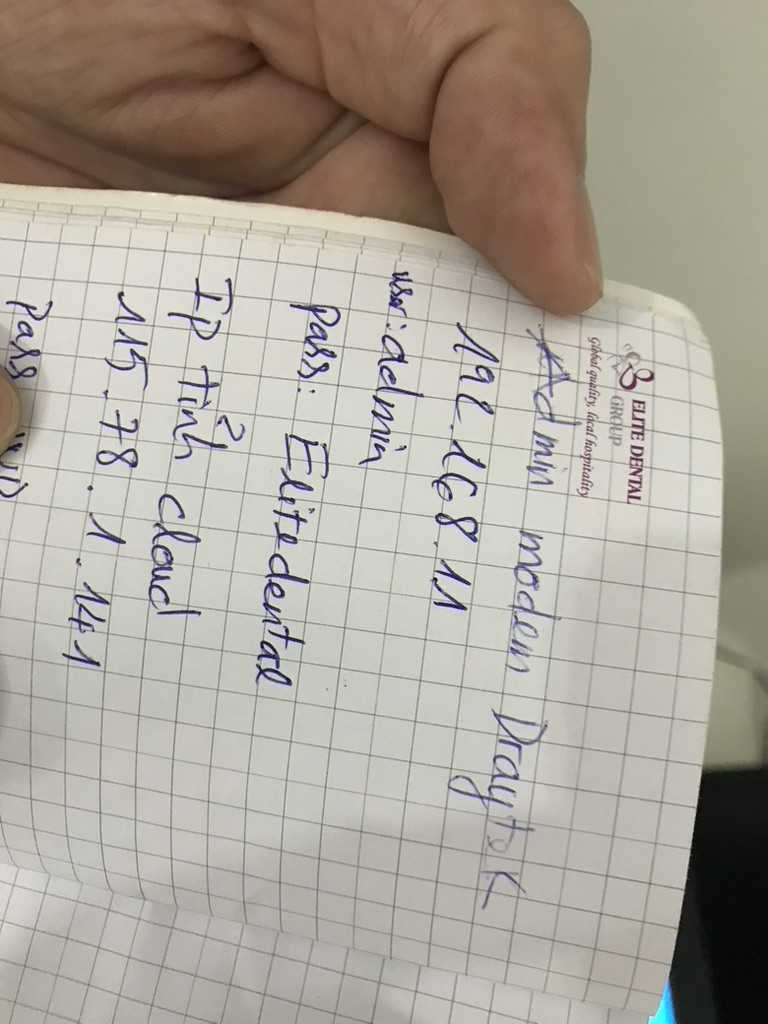 ELITE DENTAL
GROUP
Global quality, local hospitality
Admin modem Draytek
192.168.1.1
user: admin
pass: Elitedental
IP Tĩnh cloud
115.78.1.141
Pass